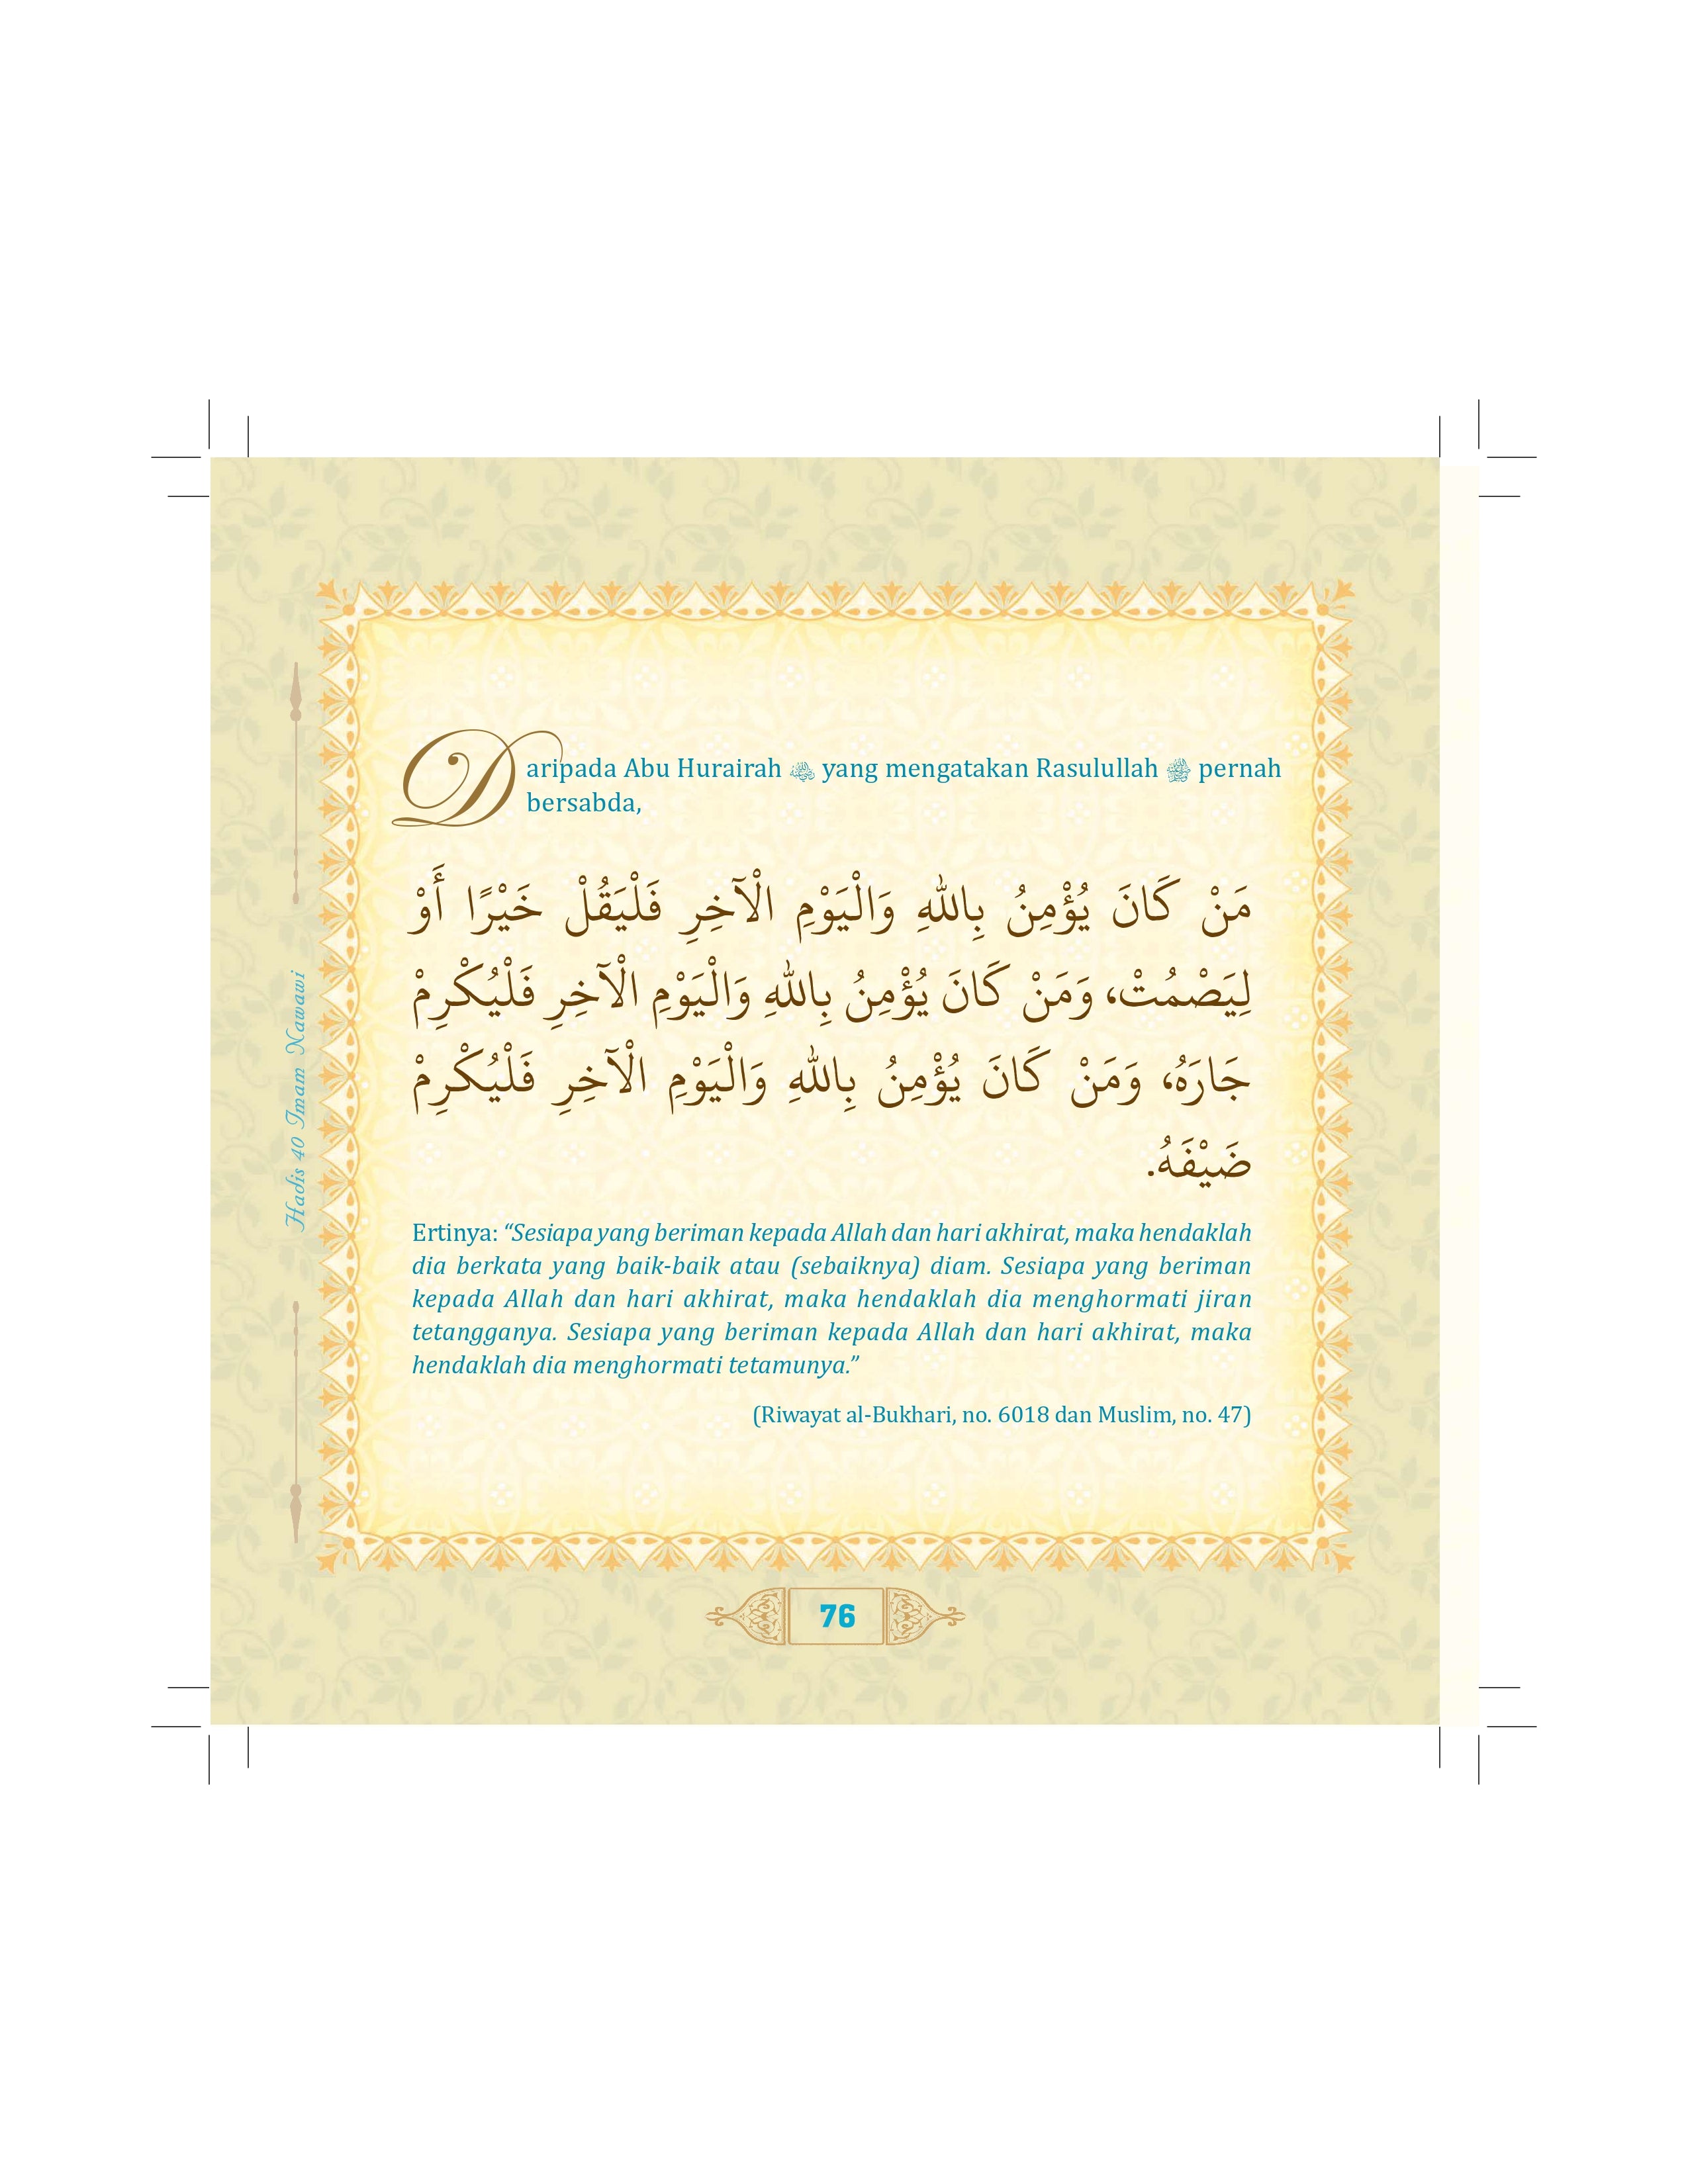 Daripada Abu Hurairah ﵁ yang mengatakan Rasulullah ﷺ pernah
bersabda,
مَنْ كَانَ يُؤْمِنُ بِاللهِ وَالْيَوْمِ الْآخِرِ فَلْيَقُلْ خَيْرًا أَوْ
لِيَصْمُتْ، وَمَنْ كَانَ يُؤْمِنُ بِاللهِ وَالْيَوْمِ الْآخِرِ فَلْيُكْرِمْ
جَارَهُ، وَمَنْ كَانَ يُؤْمِنُ بِاللهِ وَالْيَوْمِ الْآخِرِ فَلْيُكْرِمْ
ضَيْفَهُ.
Ertinya: “Sesiapa yang beriman kepada Allah dan hari akhirat, maka hendaklah
dia berkata yang baik-baik atau (sebaiknya) diam. Sesiapa yang beriman
kepada Allah dan hari akhirat, maka hendaklah dia menghormati jiran
tetangganya. Sesiapa yang beriman kepada Allah dan hari akhirat, maka
hendaklah dia menghormati tetamunya.”
(Riwayat al-Bukhari, no. 6018 dan Muslim, no. 47)
Hadis 40 Imam Nawawi
76